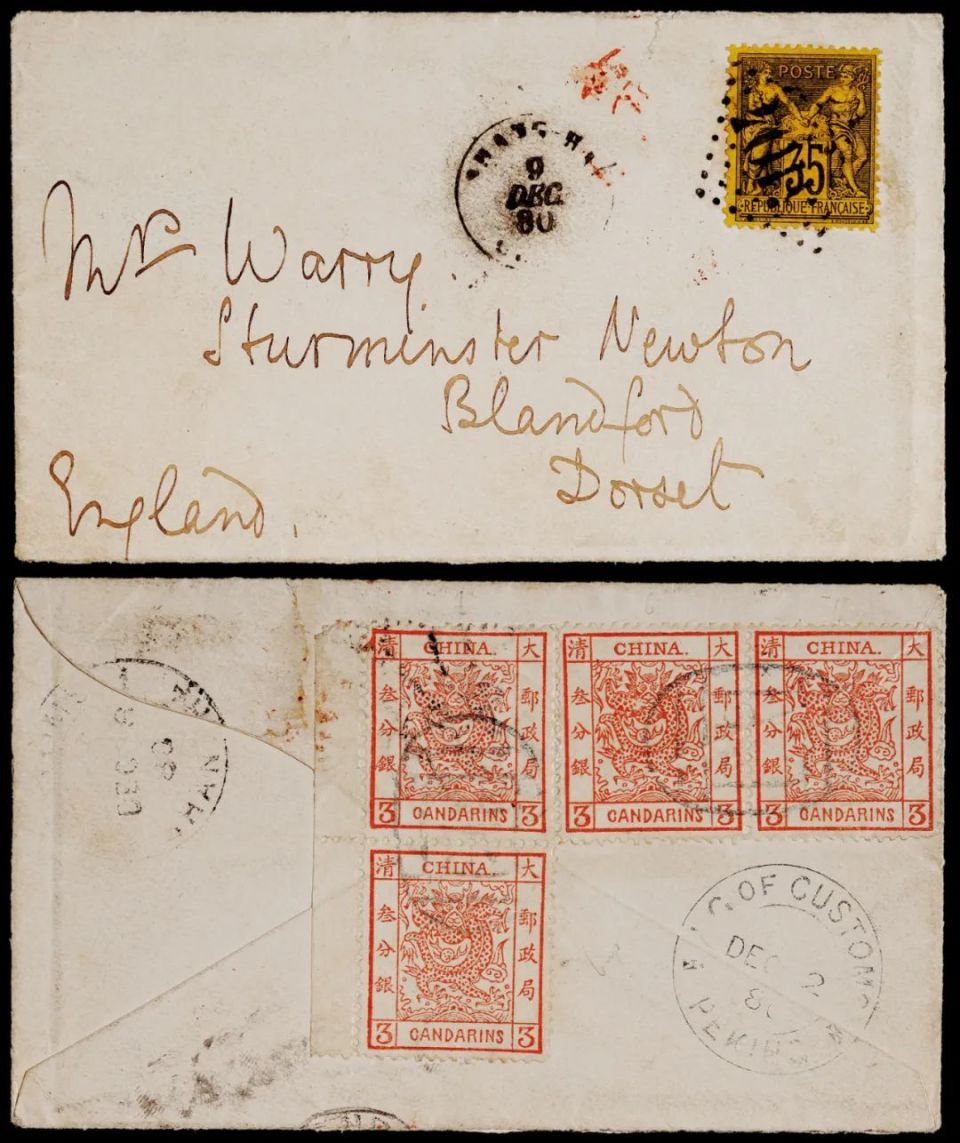 POSTE
35
REPUBLIQUE FRANCAISE
9
DEC.
80
Mrs Warry.
Sturminster Newton
Blandford
Dorset
England.
清 CHINA. 大
叁分銀
郵政局
3 CANDARINS 3
清 CHINA. 大
叁分銀
郵政局
3 CANDARINS 3
清 CHINA. 大
叁分銀
郵政局
3 CANDARINS 3
清 CHINA. 大
叁分銀
郵政局
3 CANDARINS 3
OF CUSTOM
DEC 2
8
PEKING